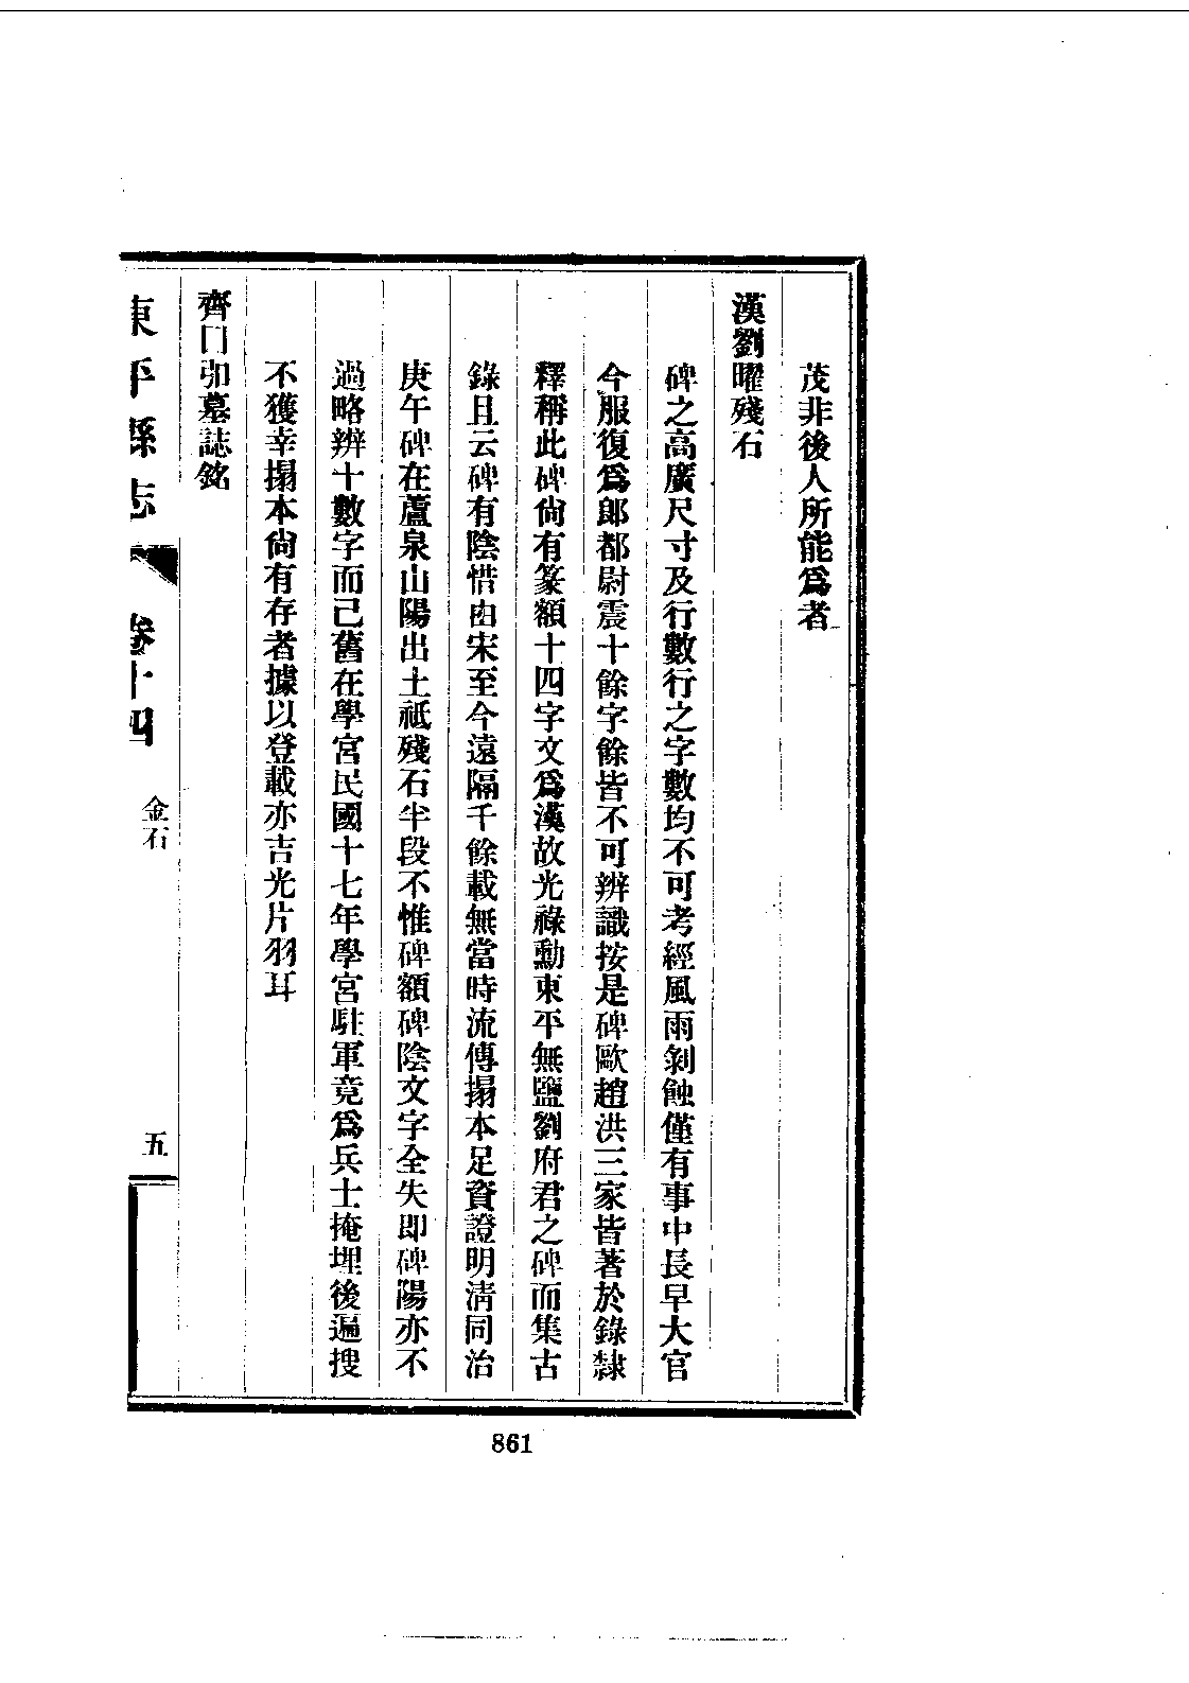 茂非後人所能爲者
漢劉曜殘石
碑之高廣尺寸及行數行之字數均不可考經風雨剝蝕僅有事中長早大官
令服復爲郎都尉震十餘字餘皆不可辨識按是碑歐趙洪三家皆著於錄隸
釋稱此碑尙有篆額十四字文爲漢故光祿勳東平無鹽劉府君之碑而集古
錄且云碑有陰惜由宋至今遠隔千餘載無當時流傳搨本足資證明淸同治
庚午碑在蘆泉山陽出土祗殘石半段不惟碑額碑陰文字全失即碑陽亦不
過略辨十數字而已舊在學宮民國十七年學宮駐軍竟爲兵士掩埋後遍搜
不獲幸搨本尙有存者據以登載亦吉光片羽耳
齊囗卭墓誌銘
東平縣志 卷十四 金石 五
861